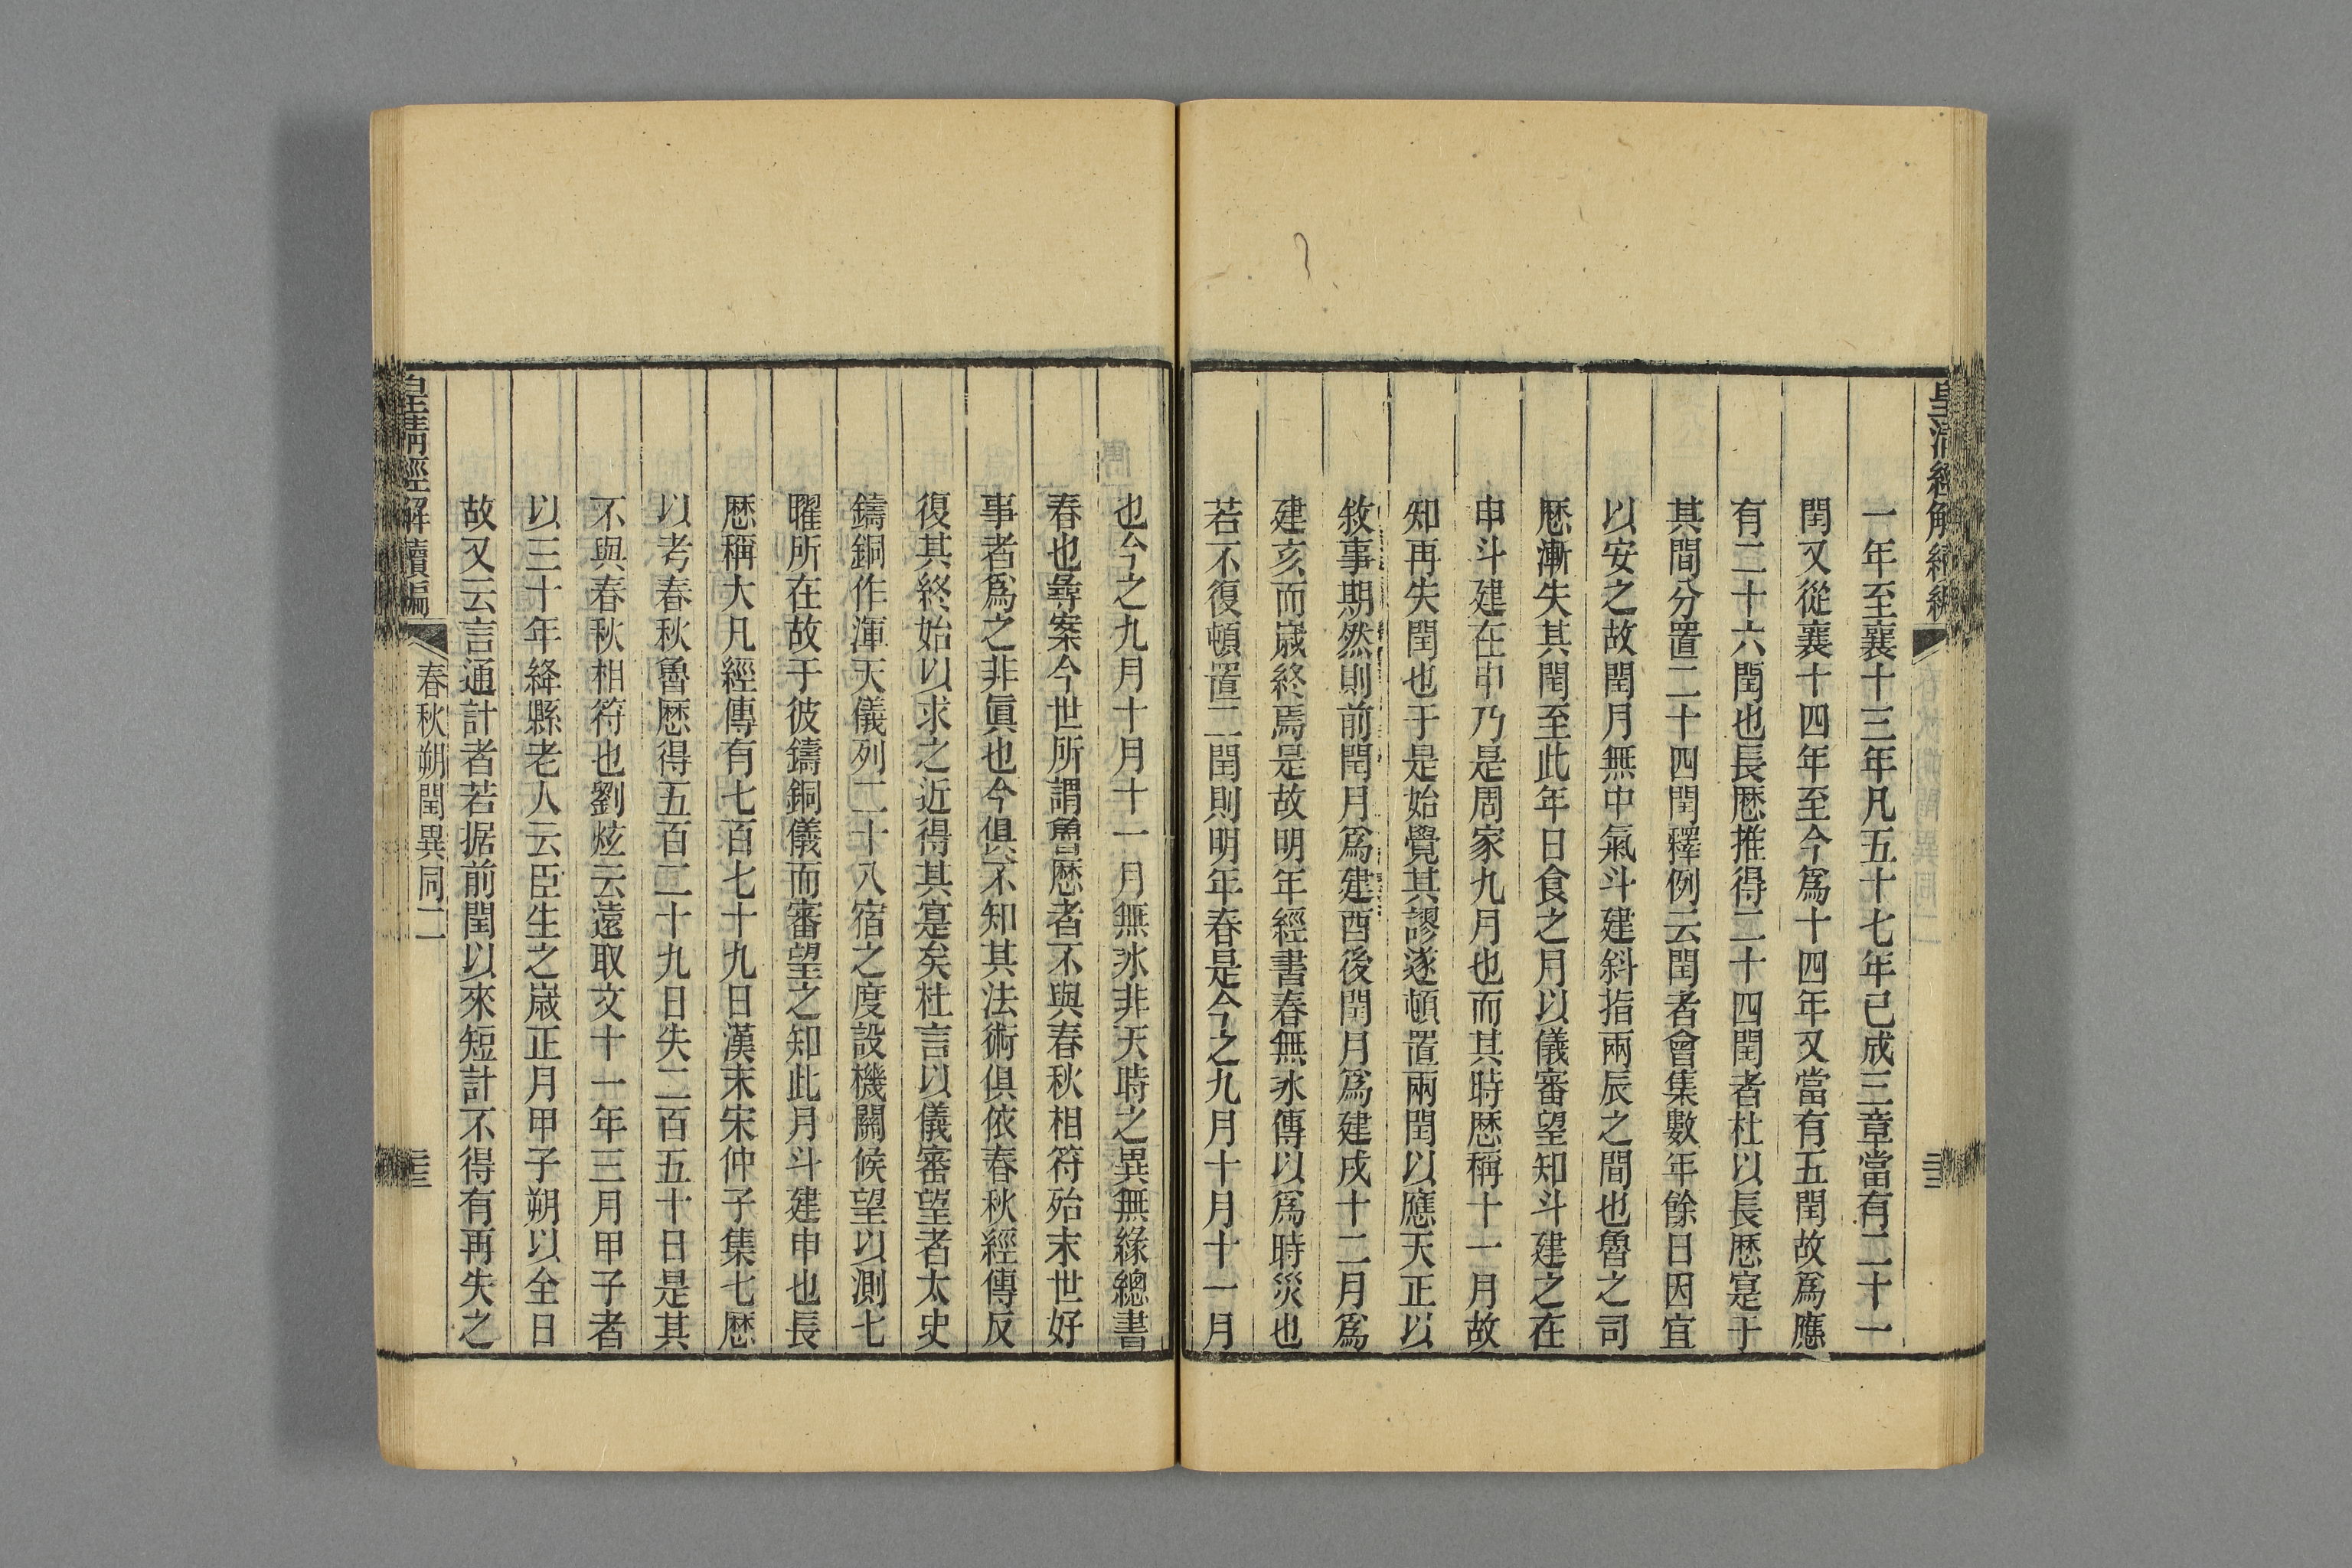 皇清經解續編
一年至襄十三年凡五十七年已成三章當有二十一
閏又從襄十四年至今爲十四年又當有五閏故爲應
有二十六閏也長厯推得二十四閏者杜以長厯寔于
其間分置二十四閏釋例云閏者會集數年餘日因宜
以安之故閏月無中氣斗建斜指兩辰之間也魯之司
厯漸失其閏至此年日食之月以儀審望知斗建之在
申斗建在申乃是周家九月也而其時厯稱十一月故
知再失閏也于是始覺其謬遂頓置兩閏以應天正以
敘事期然則前閏月爲建酉後閏月爲建戌十二月爲
建亥而歲終焉是故明年經書春無冰傳以爲時災也
若不復頓置二閏則明年春是今之九月十月十一月
也今之九月十月十一月無冰非天時之異無緣總書
春也彝案今世所謂魯厯者不與春秋相符殆末世好
事者爲之非眞也今俱不知其法術俱依春秋經傳反
復其終始以求之近得其寔矣杜言以儀審望者太史
鑄銅作渾天儀列二十八宿之度設機關候望以測七
曜所在故于彼鑄銅儀而審望之知此月斗建申也長
厯稱大凡經傳有七百七十九日漢末宋仲子集七厯
以考春秋魯厯得五百二十九日失二百五十日是其
不與春秋相符也劉炫云遠取文十一年三月甲子者
以三十年絳縣老人云臣生之歲正月甲子朔以全日
故又云言通計者若据前閏以來短計不得有再失之
皇清經解續編
春秋朔閏異同二